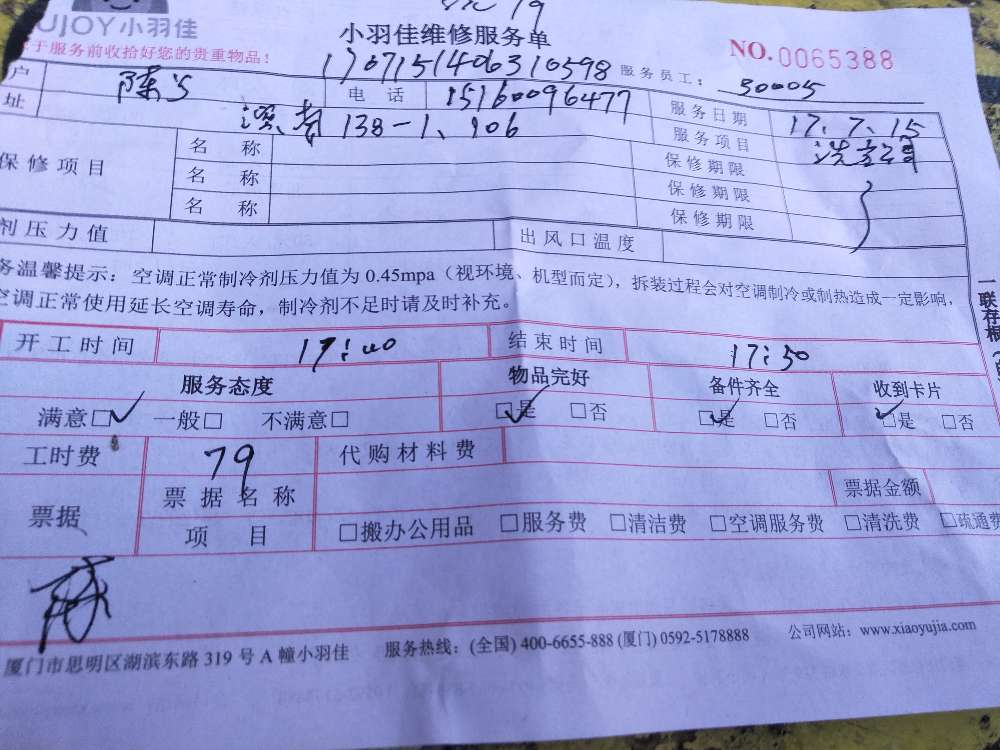 UJOY小羽佳
小羽佳维修服务单
NO.0065388
于服务前收拾好您的贵重物品！
1707151406310598
服务员工： 30005
户 陈 电话 15160096477 服务日期 17.7.15
址 138-1、106 服务项目 洗空调
保修项目 名称 保修期限
名称 保修期限
名称 保修期限
剂压力值 出风口温度
务温馨提示：空调正常制冷剂压力值为 0.45mpa（视环境、机型而定），拆装过程会对空调制冷或制热造成一定影响，
空调正常使用延长空调寿命，制冷剂不足时请及时补充。
一联存根
开工时间 17:00 结束时间 17:50
服务态度 物品完好 备件齐全 收到卡片
满意☑ 一般□ 不满意□ ☑是 □否 ☑是 □否 ☑是 □否
工时费 79 代购材料费
票据 票据名称 票据金额
项目 □搬办公用品 □服务费 □清洁费 □空调服务费 □清洗费 □疏通费
厦门市思明区湖滨东路 319 号 A 幢小羽佳 服务热线：(全国) 400-6655-888 (厦门) 0592-5178888 公司网站：www.xiaoyujia.com